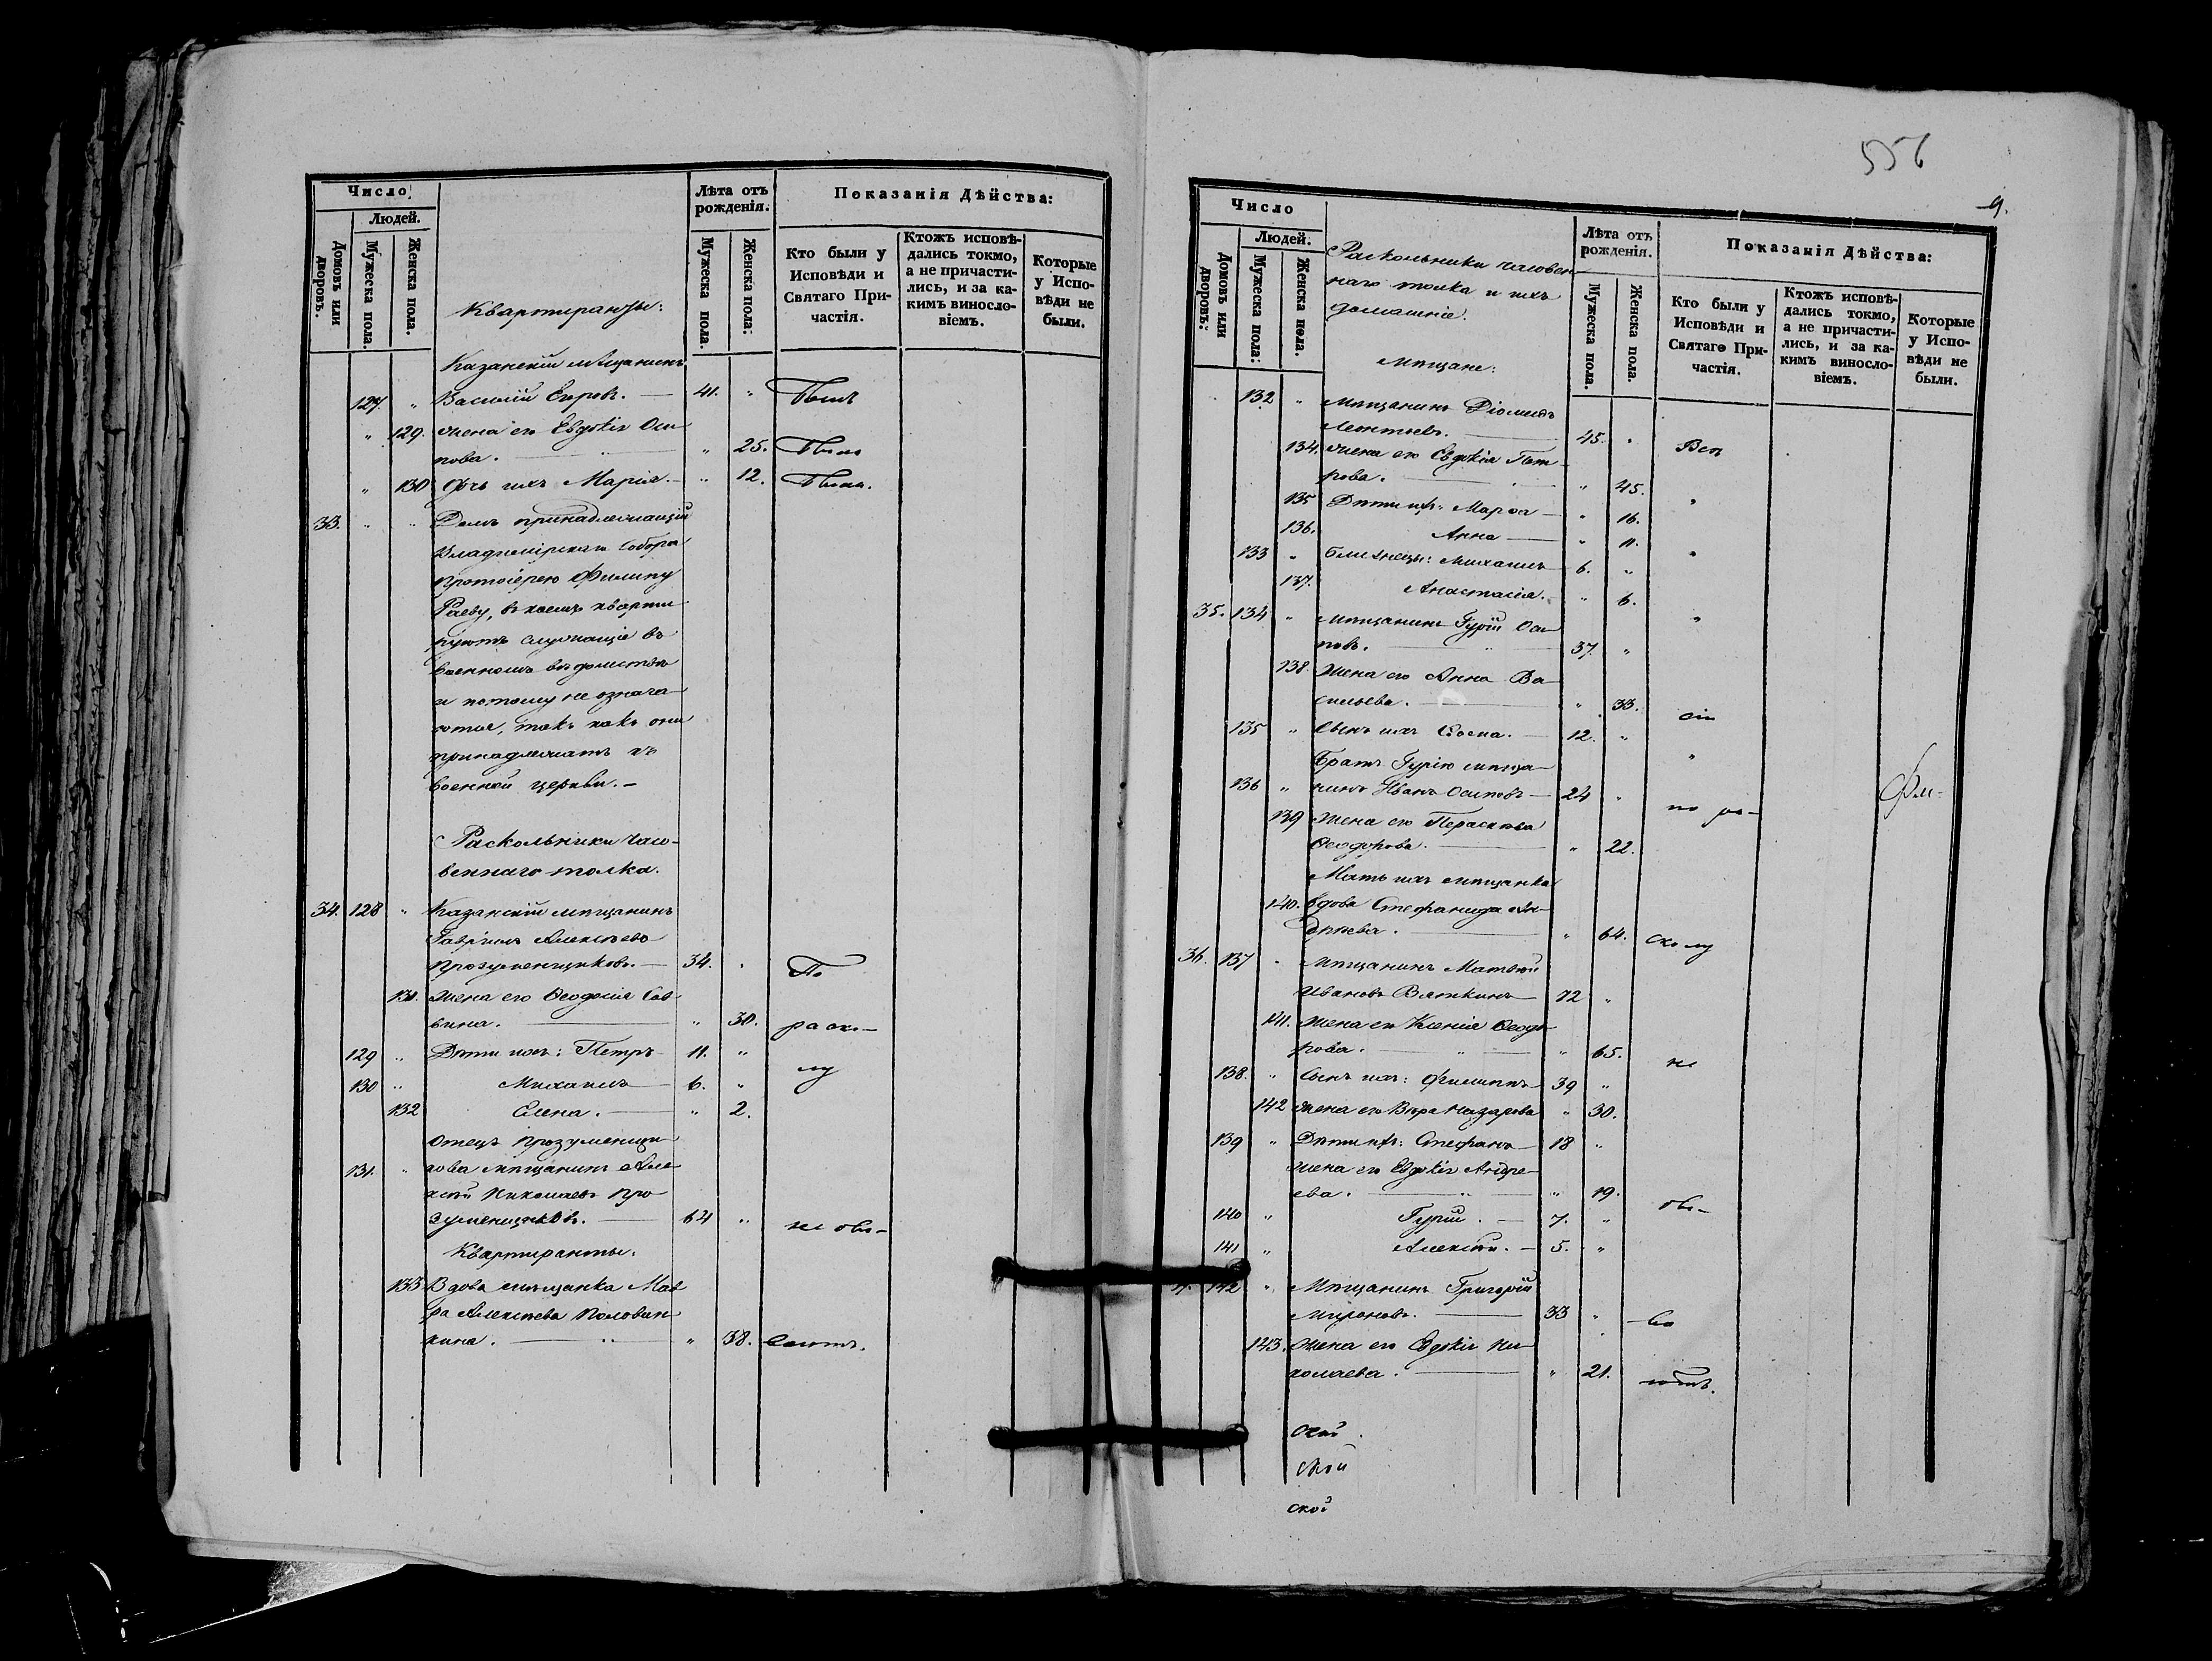 Число
Людей.
Домовъ или дворовъ.
Мужеска пола.
Женска пола.
Квартиранты:
Лѣта отъ рожденія.
Мужеска пола.
Женска пола:
Показанія Дѣйства:
Кто были у Исповѣди и Святаго Причастія.
Ктожъ исповѣдались токмо, а не причастились, и за какимъ винословіемъ.
Которые у Исповѣди не были.
Казанскій мѣщанинъ
127. " Василій Егоровъ. — 41. " Былъ
" 129. жена его Евдокія Оси-
пова. — " 25. Была
" 130 Дочь ихъ Марія. — " 12. Была.
33. " " Домъ принадлежащій
Владимірскаго Собора
Протоіерею Филипу
Раеву, въ коемъ кварти-
руютъ служащіе въ
военномъ вѣдомствѣ
и потому не означа-
ются, такъ какъ они
принадлежатъ къ
военной церкви. —
Раскольники часо-
веннаго толка.
34. 128 " Казанскій мѣщанинъ
Гавріилъ Алексѣевъ
Прозуменщиковъ. — 34. " По
131. жена его Ѳеодосія Сав-
вина. — " 30. раско-
129 " Дѣти ихъ: Петръ 11. "
лу
130 " Михаилъ — 6. "
132 Елена. — " 2.
Отецъ Прозуменщи-
131. " кова мѣщанинъ Але-
ксѣй Николаевъ Про-
зуменщиковъ. — 64 " не обя-
Квартиранты.
133 Вдова мѣщанка Мав-
ра Алексѣева Половин-
кина. — " " 38.
556
9.
Число
Людей.
Домовъ или дворовъ.
Мужеска пола:
Женска пола.
Раскольники часовен-
наго толка и ихъ
домашніе.
Лѣта отъ рожденія.
Мужеска пола.
Женска пола.
Показанія Дѣйства:
Кто были у Исповѣди и Святаго Причастія.
Ктожъ исповѣдались токмо, а не причастились, и за какимъ винословіемъ.
Которые у Исповѣди не были.
Мѣщане:
132 " Мѣщанинъ Діомидъ
Леонтьевъ. — 45. " Всѣ
134. жена его Евдокія Пет-
рова. — " 45.
135 Дѣти ихъ: Марѳа — " 16. "
136. Анна — " 11.
133 " близнецы: Михаилъ 6. " "
137. Анастасія. " 6.
35. 134 " Мѣщанинъ Гурій Оси-
повъ. — 37. " "
138. Жена его Анна Ва-
сильева. — " 33. сіи
135 " Сынъ ихъ Козма. — 12. "
Братъ Гурію мѣща-
136 " нинъ Иванъ Осиповъ — 24 " по ра-
139 жена его Параскева
Ѳеодорова. — " 22.
Мать ихъ мѣщанка
140. вдова Стефанида Ан-
дреева. — " 64. сколу
36. 137 " Мѣщанинъ Матвѣй
Ивановъ Вяткинъ — 72 "
141. Жена его Ксенія Ѳеодо-
рова. — " " 65. не
138. " Сынъ ихъ: Филиппъ 39 "
142 жена его Вѣра Назарова " 30.
139 " Дѣти ихъ: Стефанъ — 18 "
жена его Евдокія Андре-
ева. — " " 19. обя-
140 " Гурій. — 7. "
141 " Алексѣй. — 5. "
142 " Мѣщанинъ Григорій
Мироновъ. — 33 "
143. Жена его Евдокія Ни-
колаева. — " 21.
ской
ской
ской